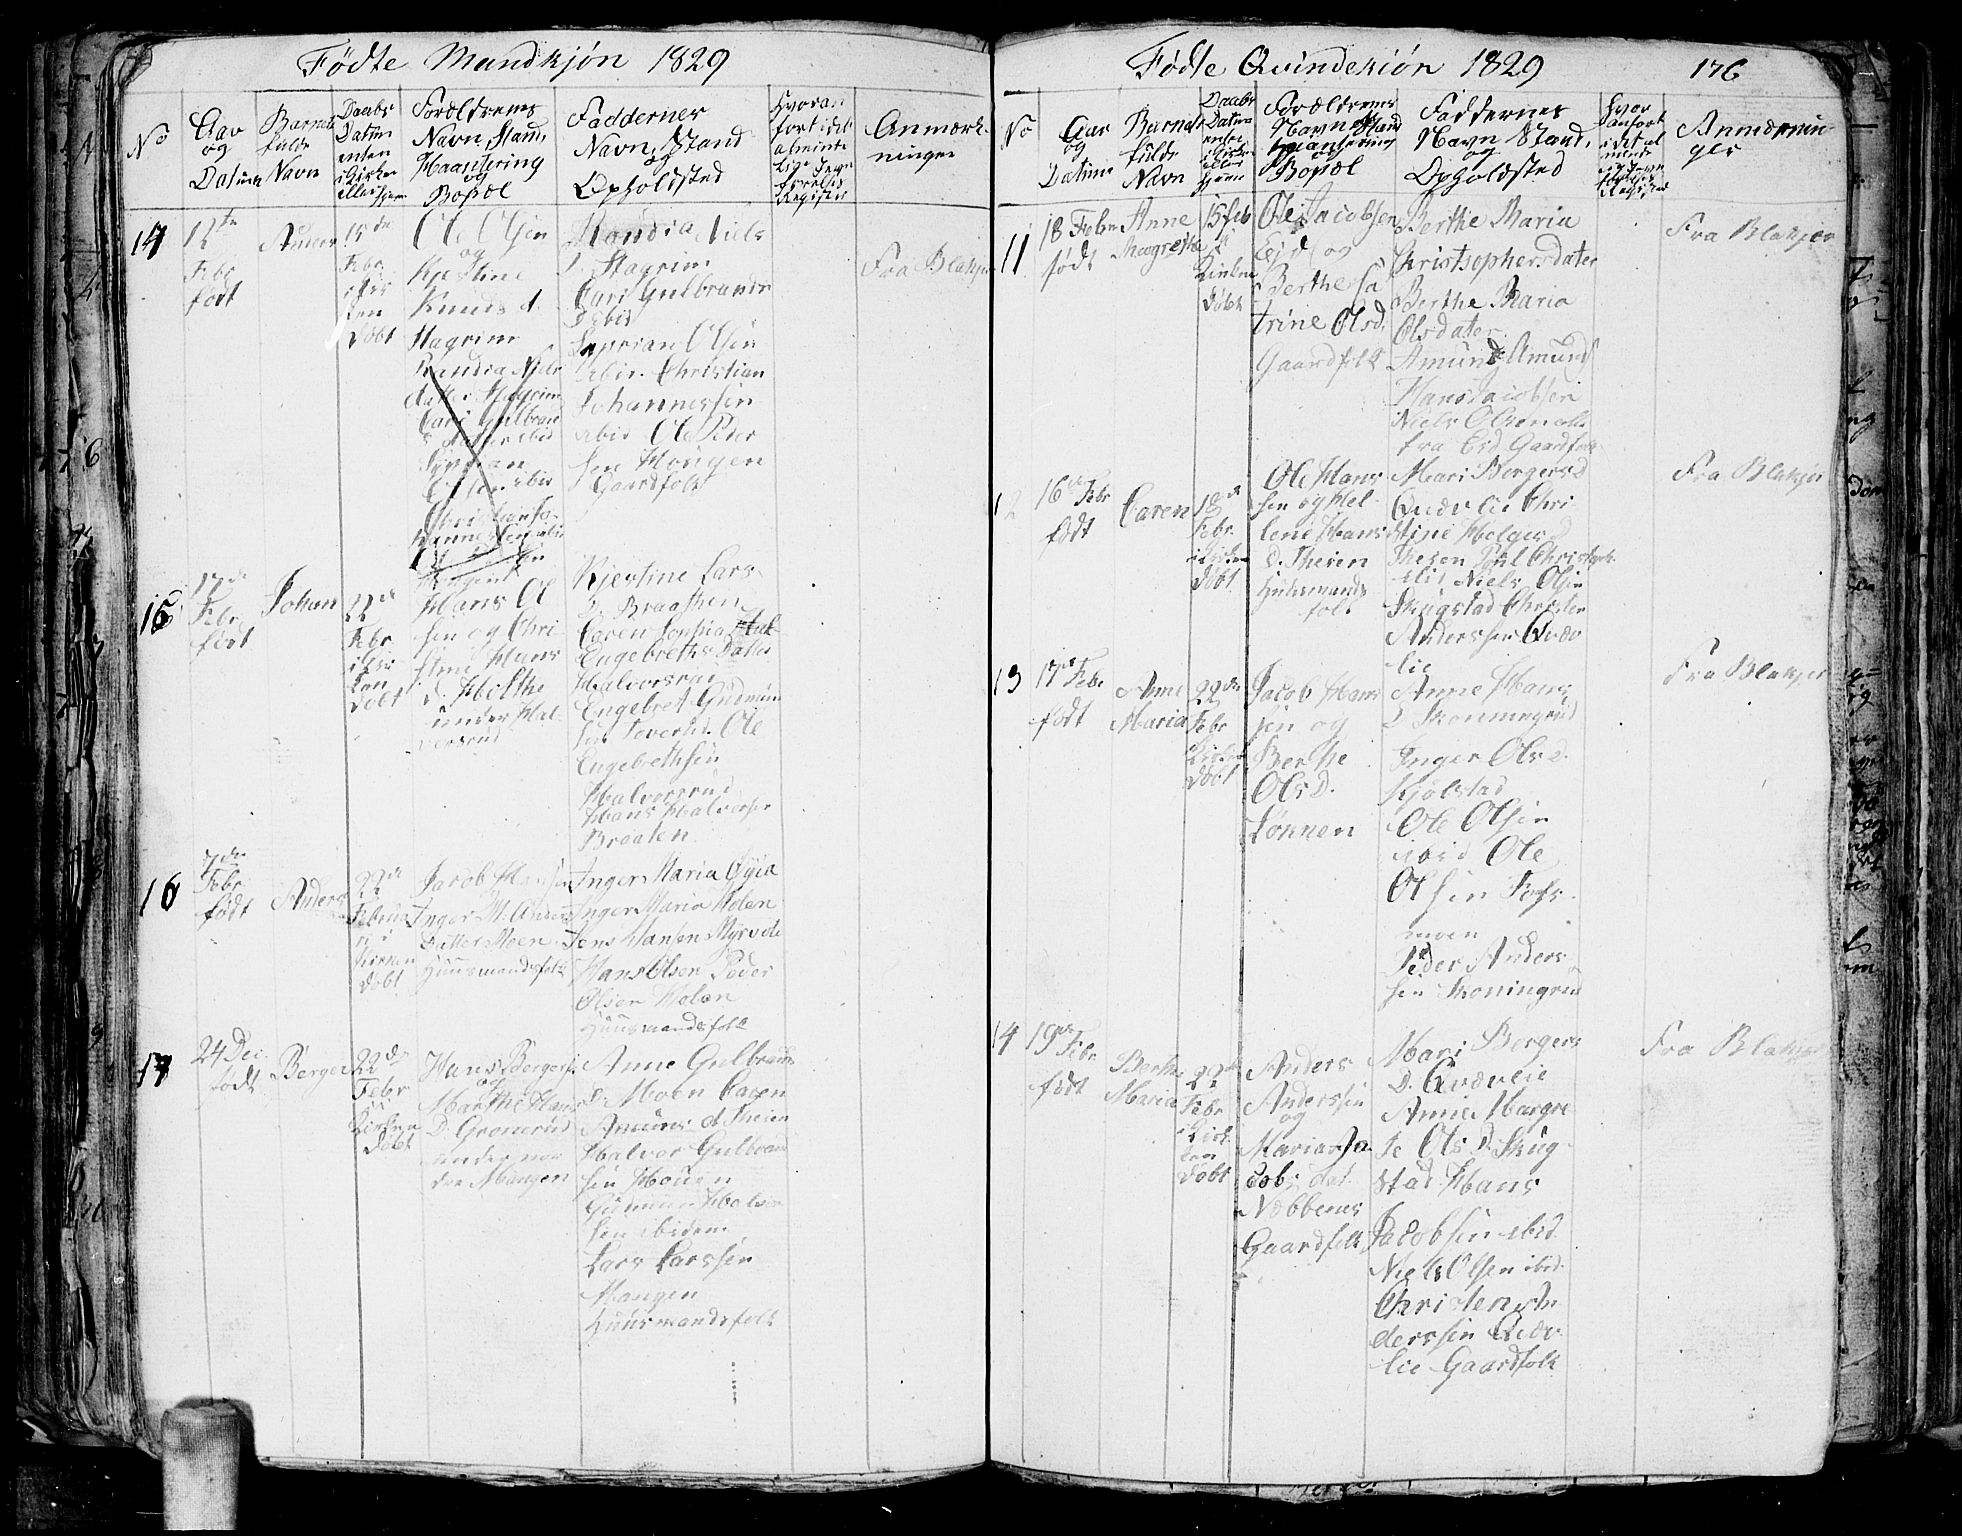 Födte Mandkjön 1829
No
Aar
og
Datum
Barnets
fulde
Navn
Daabs
Datum
enten
i Kirken
eller hjem
Foræeldrenes
Navn, Stand,
Haantering
og
Bopæl
Faddernes
Navn, Stand
og
Opholdsted
Hvoran
fört i det
alminde
lige
Register
Anmærk-
ninger
14
12te
Febr
födt
15de
Febr
i Kir
ken
döbt
Ole Olsen
og
Kjestine
Knuds d.
Hagrim
Randia Niels
datter Hagrim
Cari Gulbran
Randia Niels
D. Hagrim
Cari Gulbrands
D ibid
Siprian Olsen
ibid. Christian
Johannessen
ibid Ole Peder
sen Hougen
Gaardfolk
Fra Blakjer
15
17de
Febr
födt
Johan
22de
Febr
i Kir
ken
döbt
Hans Ol
sen og Chri
stine Hans
d. Holthe
under Hal-
versrud
Kjestine Lars
D. Braathen
Caren Sophia
Engebreths Datter
Halvorsrud
Engebret Gudmun
sen Toverud. Ole
Engebrethsen
Halvorsrud
Hans Halvorsen
Braaten
16
7de
Febr
födt
Anders
22de
Februa
ri i
Kirken
döbt
Jacob Hansen
Inger M. Anders
Datter Moen
Huusmandsfolk
Inger Maria Öyia
Inger Maria Holen
Jens Hansen Myrvold
Hans Olsen Peder
Olsen Holen
Huusmandsfolk
17
24 Dec.
födt
Börger
22de
Febr
i
Kirken
döbt
Hans Börgersen
og
Marthe Hans
D. Gronerud
under nor
dre Mangen
Anne Gulbrands
D. Moen Caren
Amuns d. Theien
Halvor Gulbrand
sen Mouen
Gudmun Halvor
sen ibidem
Lars Larssen
Mangen
Huusmandsfolk
Födte Qvindekiön 1829
176
No
Aar
og
Datum
Barnets
fulde
Navn
Daabs
Datum
enten
i Kirken
eller
hjem
Forældrenes
Navn Stand
Haantering
og
Bopæl
Faddernes
Navn Stand,
og
Opholdsted
Hvor
anfört
i det al
minde
Register
Anmærknin-
ger
11
18 Febr
födt
Anne
Magrethe
15 feb
i
Kirken
döbt
Ole Jacobsen
Eid og
Berthe Ca
trine Olsd.
Gaardfolk
Berthe Maria
Christophersdater
Berthe Maria
Olsdater
Amund Amunds
Hans Jacobsen
Niels Olsen alle
fra Eid Gaardfolk
Fra Blakjer
12
16de Febr
födt
Caren
18de
Febr.
i Kirken
döbt
Ole Hans
sen og Hel-
lene Hans
D. Theien
Huusmands
folk
Mari Borgersd
Quævlie Chri
stine Helgesd
Theien Poul Christoph
Niels Olsen
Skugstad Christen
Anderssen Quæv
lie
Fra Blakjer
13
17de Febr
födt
Anne
Maria
22de
Febr
i Kirken
döbt
Jacob Hans
sen og
Berthe
Ols D.
Lönnen
Anne Hans
D. Skonningrud
Inger Ols D.
Kjölstad
Ole Olsen
ibid Ole
Olsen Foss-
moen
Peder Anders
sen Skoningrud
Fra Blakjer
14
19de Febr.
födt
Berthe
Maria
22de
Febr
i Kir
ken
döbt
Anders
Anderssen
og
Maria Ja
cobs dat.
Næbbenes
Gaardfolk
Mari Borgers
D. Quævlie
Anne Margre
te Ols D. Skug-
stad Hans
Jacobsen ibid.
Niels Olsen ibid.
Christen An
derssen Quæv
lie Gaardfolk
Fra Blakjer